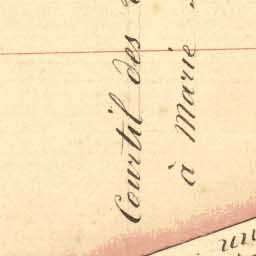 Courtil des
à Marie
un